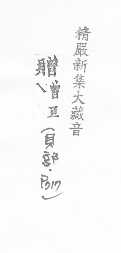 精嚴新集大藏音
贈 曾 (貝部·P017)